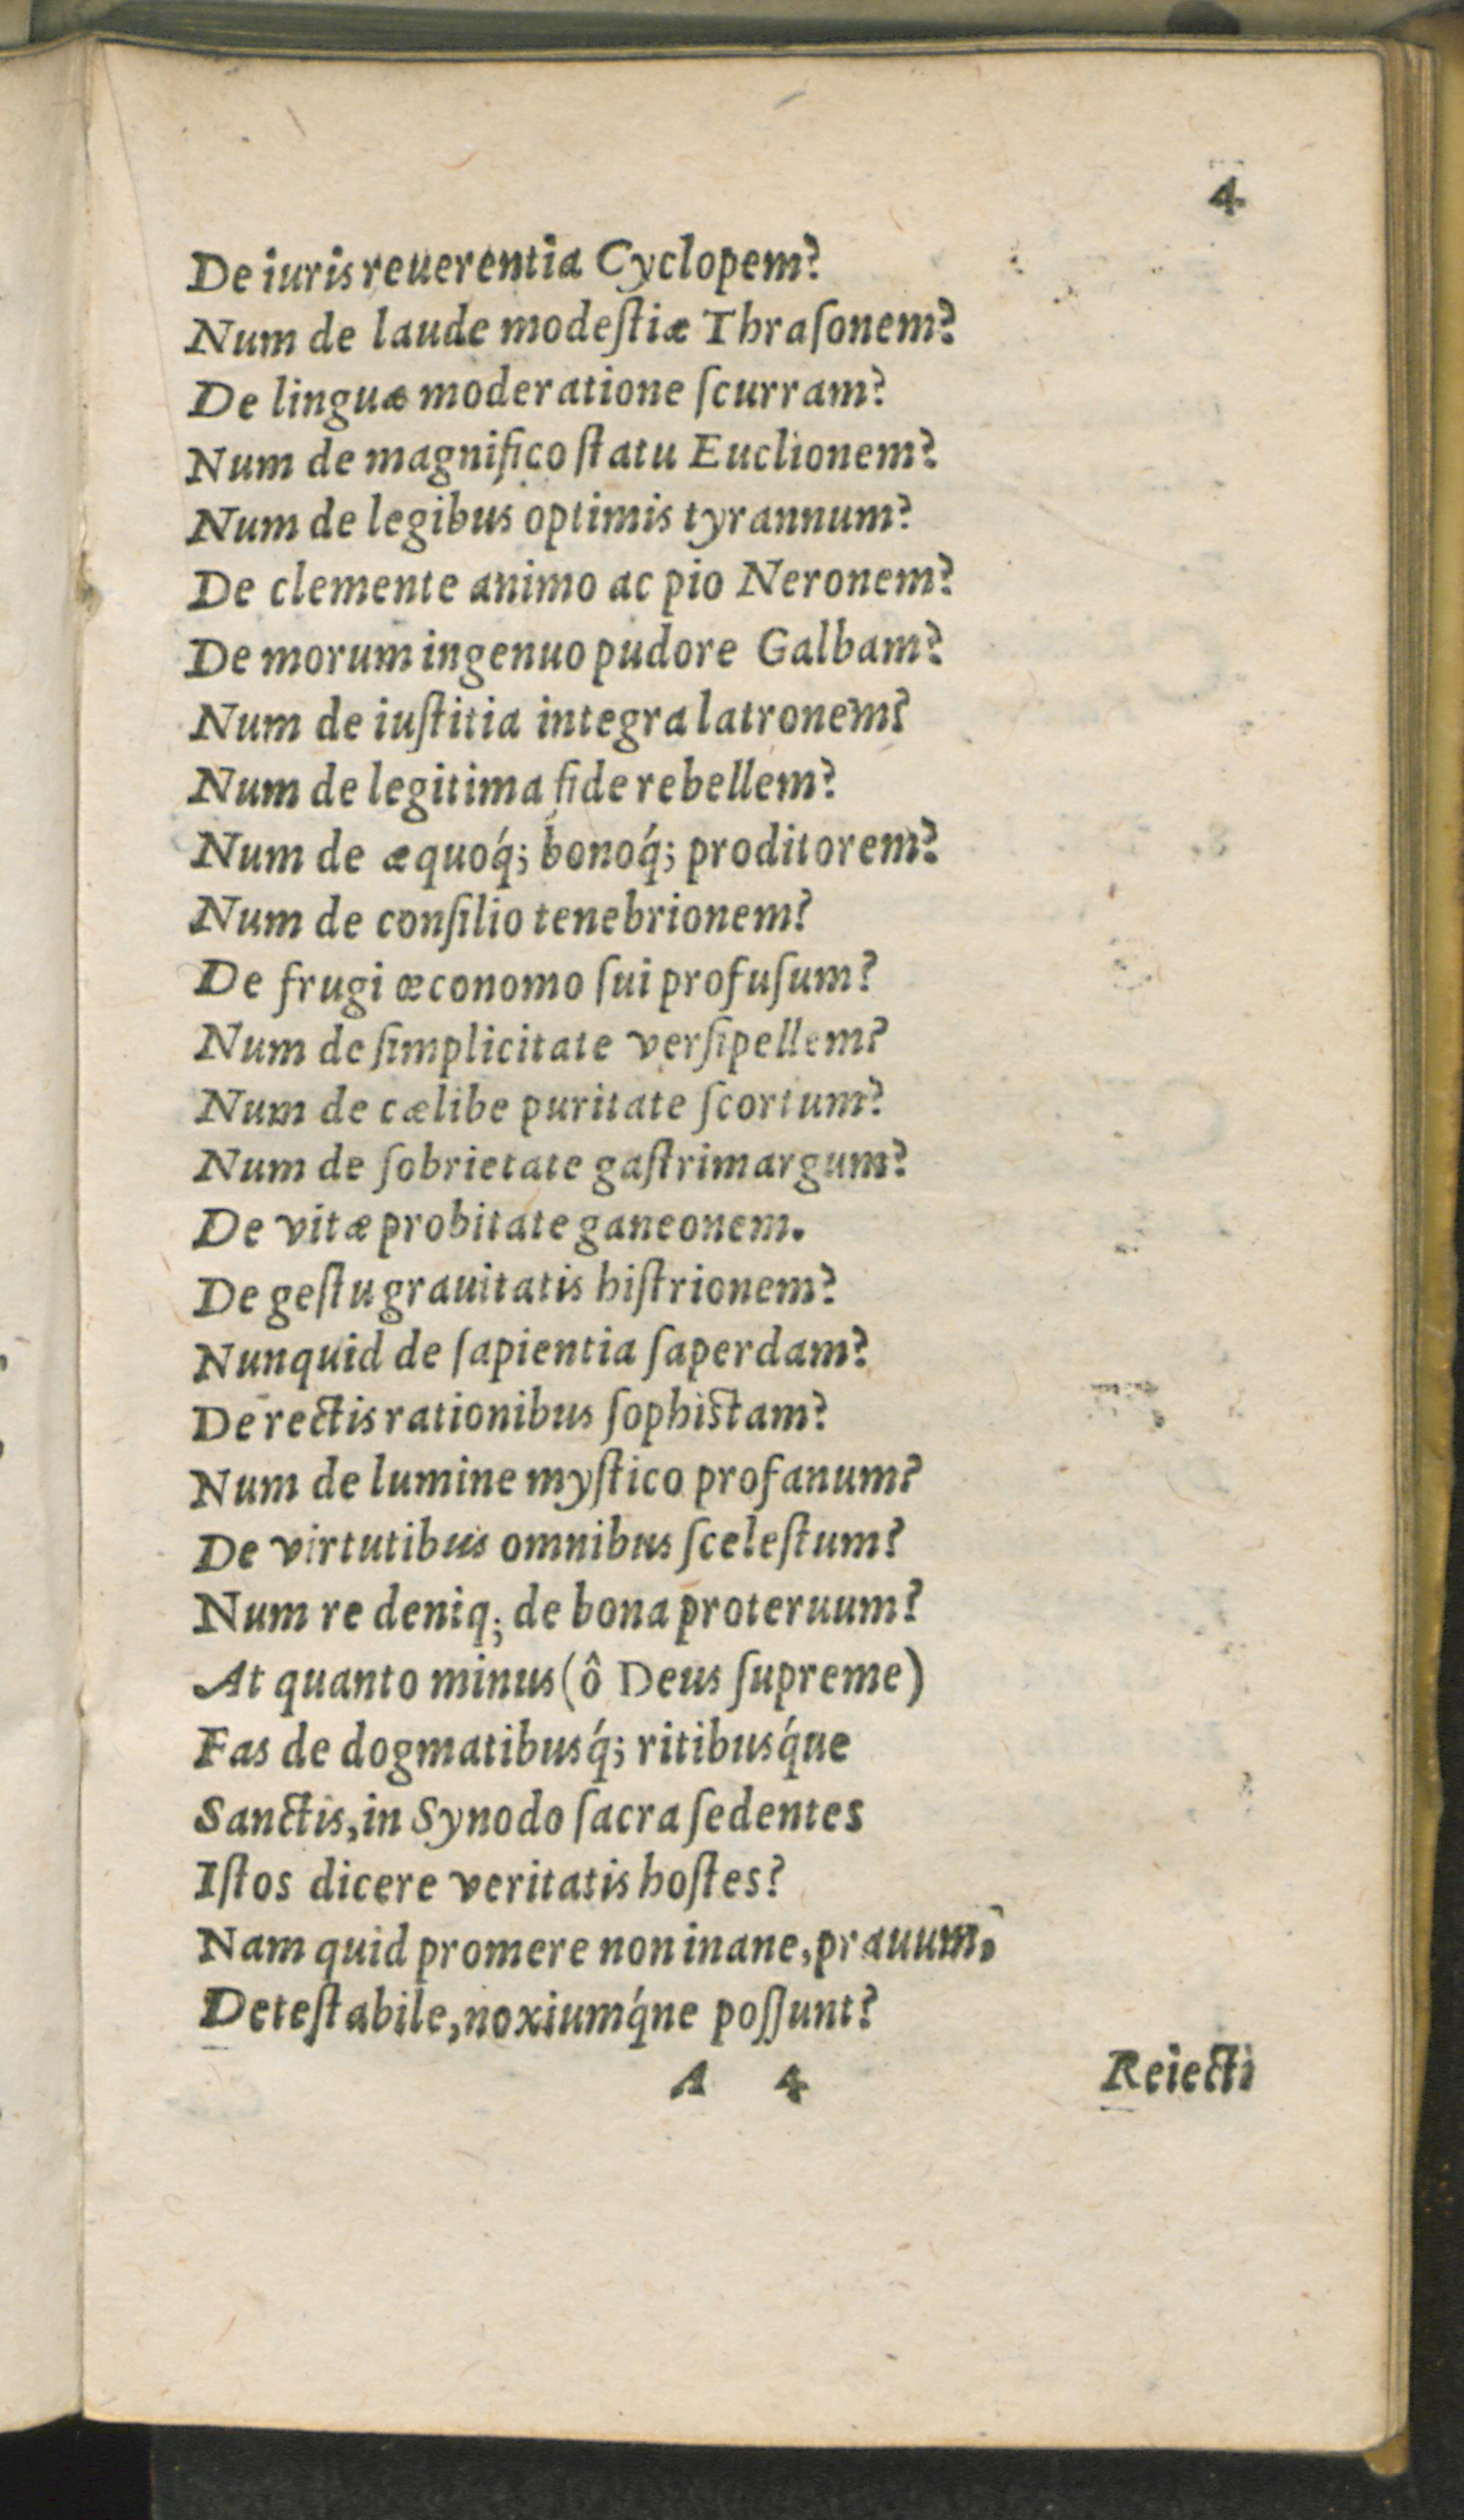 4
De iuris reuerentia Cyclopem?
Num de laude modeſtiæ Thraſonem?
De linguæ moderatione ſcurram?
Num de magnifico ſtatu Euclionem?
Num de legibus optimis tyrannum?
De clemente animo ac pio Neronem?
De morum ingenuo pudore Galbam?
Num de iuſtitia integra latronem?
Num de legitima fide rebellem?
Num de æquoq́; bonoq́; proditorem?
Num de conſilio tenebrionem?
De frugi œconomo ſui profuſum?
Num de ſimplicitate verſipellem?
Num de cælibe puritate ſcortum?
Num de ſobrietate gaſtrimargum?
De vitæ probitate ganeonem.
De geſtu grauitatis hiſtrionem?
Nunquid de ſapientia ſaperdam?
De rectis rationibus ſophistam?
Num de lumine myſtico profanum?
De virtutibus omnibus ſceleſtum?
Num re deniq; de bona proteruum?
At quanto minus (ô Deus ſupreme)
Fas de dogmatibusq́; ritibusq́ue
Sanctis, in Synodo ſacra ſedentes
Iſtos dicere veritatis hoſtes?
Nam quid promere non inane, prauum,
Deteſtabile, noxiumq́ne poſſunt?
A 4
Reiecti